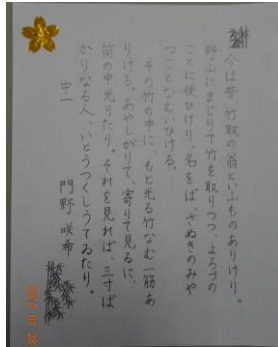 今は昔、竹取の翁といふものありけり。
野山にまじりて竹を取りつつ、よろづの
ことに使ひけり。名をば、さぬきのみや
つことなむいひける。
その竹の中に、もと光る竹なむ一筋あ
りける。あやしがりて、寄りて見るに、
筒の中光りたり。それを見れば、三寸ば
かりなる人、いとうつくしうてゐたり。
中一
門野 咲希